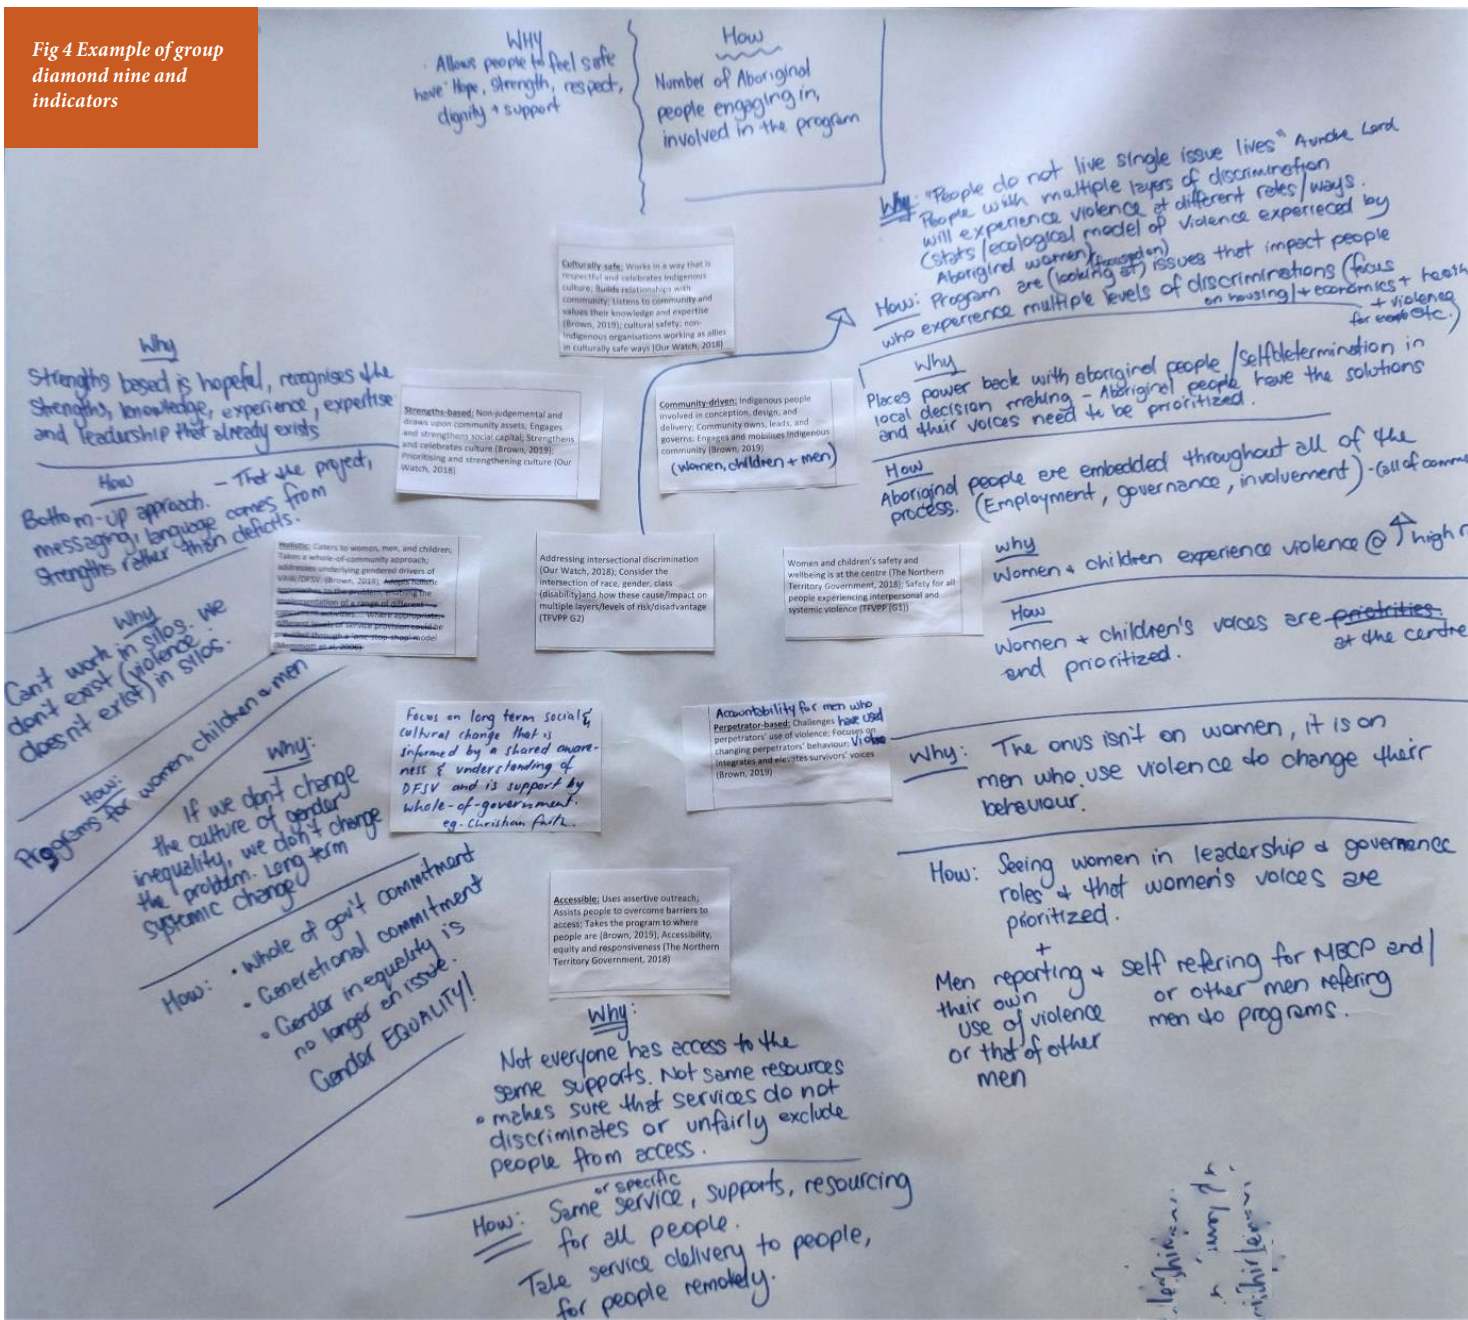 Fig 4 Example of group
diamond nine and
indicators
WHY
Allows people to feel safe
have Hope, Strength, respect,
dignity + support
How
Number of Aboriginal
people engaging in,
involved in the program
Why: "People do not live single issue lives" Aundre Lord
People with multiple layers of discrimination
will experience violence at different rates/ways.
(stats/ecological model of violence experieced by
Aboriginal women) (focused on)
How: Program are (looking at) issues that impact people
who experience multiple levels of discriminations (focus
on housing/+ economics + health
+ violence
for etc.)
Culturally-safe: Works in a way that is
respectful and celebrates Indigenous
culture; Builds relationships with
community; Listens to community and
values their knowledge and expertise
(Brown, 2019); cultural safety; non-
Indigenous organisations working as allies
in culturally safe ways (Our Watch, 2018)
Why
Strengths based is hopeful, recognises the
Strengths, knowledge, experience, expertise
and leadership that already exists
How
Bottom-up approach. - That the project,
messaging, language comes from
strengths rather than deficits.
Strengths-based: Non-judgemental and
draws upon community assets; Engages
and strengthens social capital; Strengthens
and celebrates culture (Brown, 2019);
Prioritising and strengthening culture (Our
Watch, 2018)
Community-driven: Indigenous people
involved in conception, design, and
delivery; Community owns, leads, and
governs; Engages and mobilises Indigenous
community (Brown, 2019)
(women, children + men)
Why
Places power back with aboriginal people/selfdetermination in
local decision making - Aboriginal people have the solutions
and their voices need to be prioritized.
How
Aboriginal people are embedded throughout all of the
process. (Employment, governance, involvement) - (all of comm
Holistic: Caters to women, men, and children;
Takes a whole-of-community approach;
addresses underlying gendered drivers of
VAW/DFSV; (Brown, 2019); Adopts holistic
approaches to the problem, enabling the
implementation of a range of different
Where appropriate,
different levels of service provision could be
through a 'one-stop-shop' model
Addressing intersectional discrimination
(Our Watch, 2018); Consider the
intersection of race, gender, class
(disability)and how these cause/impact on
multiple layers/levels of risk/disadvantage
(TFVPP G2)
Women and children's safety and
wellbeing is at the centre (The Northern
Territory Government, 2018); Safety for all
people experiencing interpersonal and
systemic violence (TFVPP (G1))
why
Women + children experience violence @ ↑ high r
How
Women + children's voices are priotrities.
at the centre
and prioritized.
Why
Can't work in silos. We
don't exist (violence
doesn't exist) in silos.
How:
Programs for women, children & men
Focus on long term social &
cultural change that is
informed by a shared aware-
ness & understanding of
DFSV and is support by
whole-of-government.
eg. Christian faith.
Accountability for men who
have used
Violence
Perpetrator-based: Challenges
perpetrators' use of violence; Focuses on
changing perpetrators' behaviour;
Integrates and elevates survivors' voices
(Brown, 2019)
Why: The onus isn't on women, it is on
men who use violence to change their
behaviour.
How: Seeing women in leadership & governance
roles & that women's voices are
prioritized.
+
Men reporting & self refering for MBCP and/
their own or other men refering
use of violence men to programs.
or that of other
men
Why:
If we don't change
the culture of gender
inequality, we don't change
the problem. Long term
systemic change
How: • Whole of gov't commitment
• Generational commitment
• Gender inequality is
no longer an issue.
Gender EQUALITY!
Accessible: Uses assertive outreach;
Assists people to overcome barriers to
access; Takes the program to where
people are (Brown, 2019); Accessibility,
equity and responsiveness (The Northern
Territory Government, 2018)
Why:
Not everyone has access to the
same supports. Not same resources
• makes sure that services do not
discriminates or unfairly exclude
people from access.
or specific
How: Same service, supports, resourcing
for all people.
Take service delivery to people,
for people remotely.